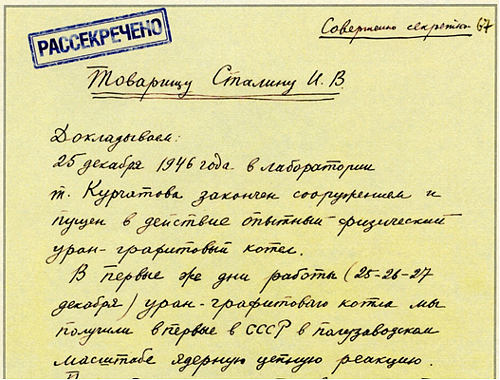 РАССЕКРЕЧЕНО
Совершенно секретно 67
Товарищу Сталину И.В.
Докладываем:
25 декабря 1946 года в лаборатории
т. Курчатова закончен сооружением и
пущен в действие опытный физический
уран-графитовый котел.
В первые же дни работы (25-26-27
декабря) уран-графитового котла мы
получили впервые в СССР в полузаводском
масштабе ядерную цепную реакцию.